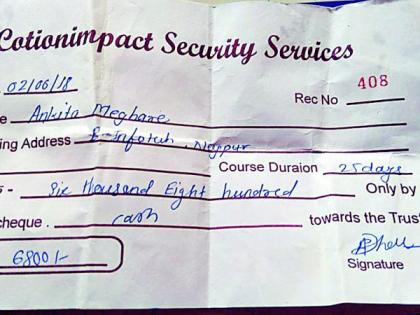 Cotionimpact Security Services
02/06/18
Rec No 408
e Ankita Meghare
ing Address E-Infotech, Nagpur
Course Duraion 25 days
s - Six thousand Eight hundred Only by
cheque . cash towards the Trus
6800/-
Signature